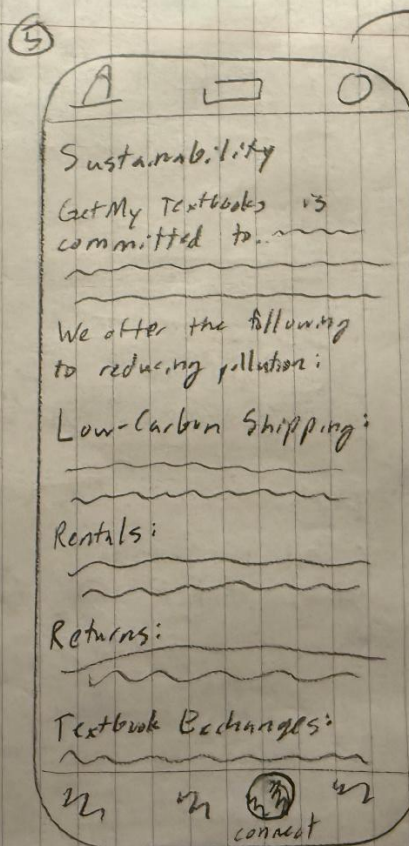 5
Sustainability
GetMy Textbooks is
committed to..
We offer the following
to reducing pollution:
Low-Carbon Shipping:
Rentals:
Returns:
Textbook Exchanges:
connect